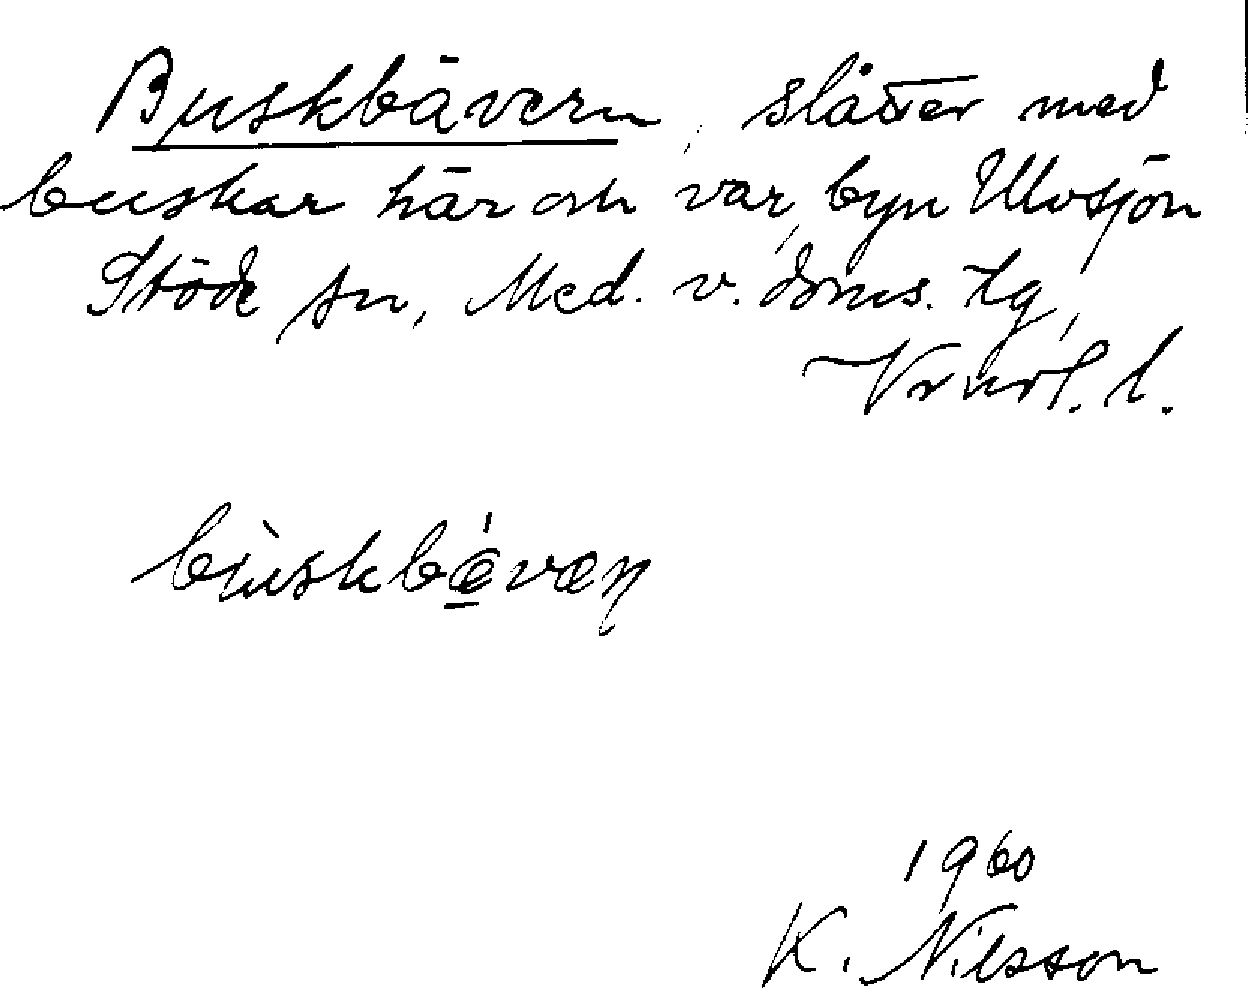 Buskbävern, slåtter med
buskar här och var, byn Ulvsjön
Stöde sn, Med. v. doms. tg,
Vrnrl. l.
bùskbé̱væn̥
1960
K. Nilsson